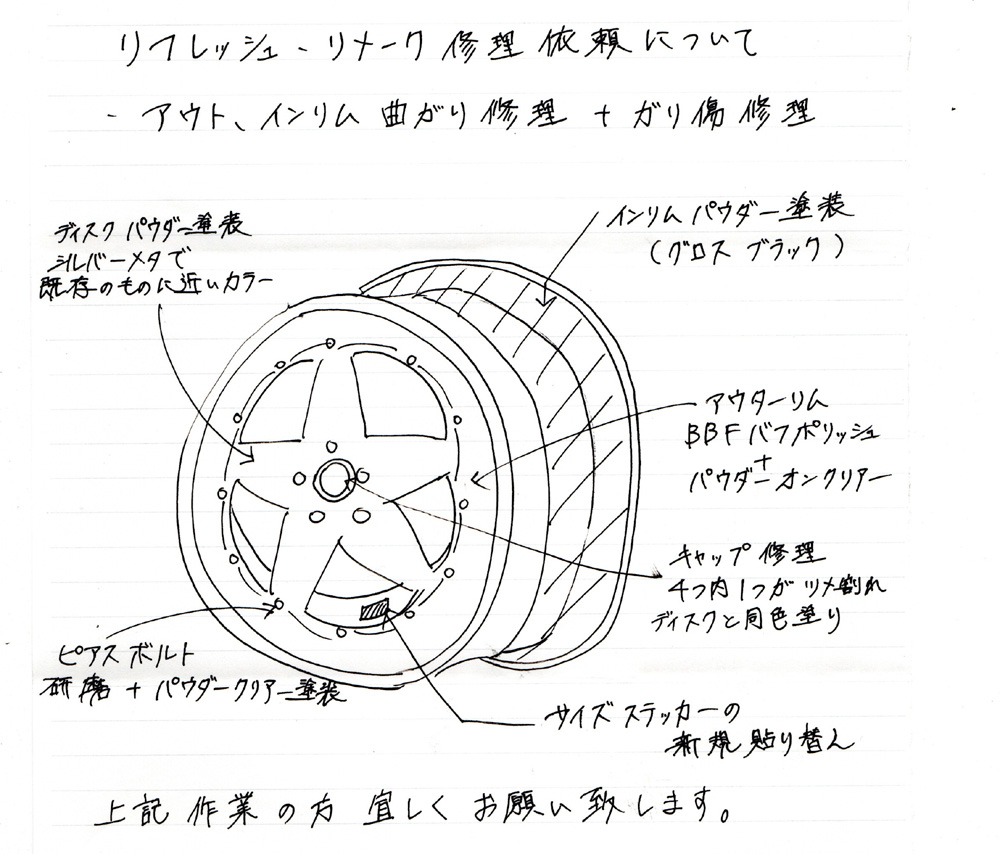 リフレッシュ・リメーク修理依頼について
・アウト、インリム曲がり修理 + ガリ傷修理
ディスクパウダー塗装
シルバーメタで
既存のものに近いカラー
インリムパウダー塗装
(グロスブラック)
アウターリム
BBFバフポリッシュ
+
パウダーオンクリアー
キャップ修理
4つ内1つがツメ割れ
ディスクと同色塗り
ピアスボルト
研磨 + パウダークリアー塗装
サイズステッカーの
新規貼り替え
上記作業の方宜しくお願い致します。